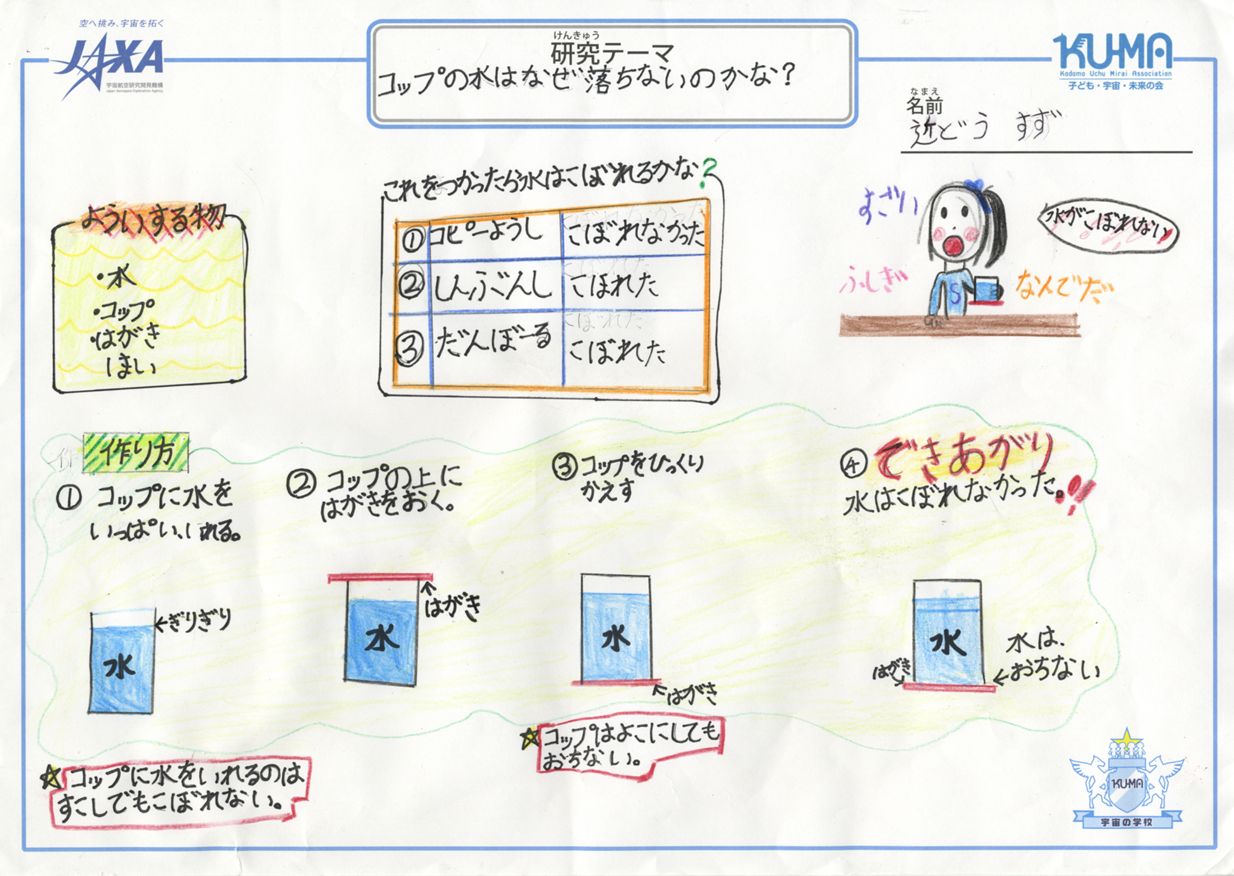 空へ挑み、宇宙を拓く
JAXA
宇宙航空研究開発機構
Japan Aerospace Exploration Agency
けんきゅう
研究テーマ
コップの水はなぜ落ちないのかな?
KU-MA
Kodomo Uchu Mirai Association
子ども・宇宙・未来の会
なまえ
名前
近どう すず
よういする物
・水
・コップ
・はがき
ほい
これをつかったら水はこぼれるかな?
① コピーようし こぼれなかった
② しんぶんし こぼれた
③ だんぼーる こぼれた
すごい
水がこぼれない
ふしぎ
なんでだ
S
作り方
① コップに水を
いっぱい、いれる。
←ぎりぎり
水
② コップの上に
はがきをおく。
はがき
水
③ コップをひっくり
かえす
水
はがき
④ できあがり
水はこぼれなかった。!!
水
はがき
水は、
おちない
☆ コップに水をいれるのは
すこしでもこぼれない。
☆ コップはよこにしても
おちない。
KU-MA
宇宙の学校